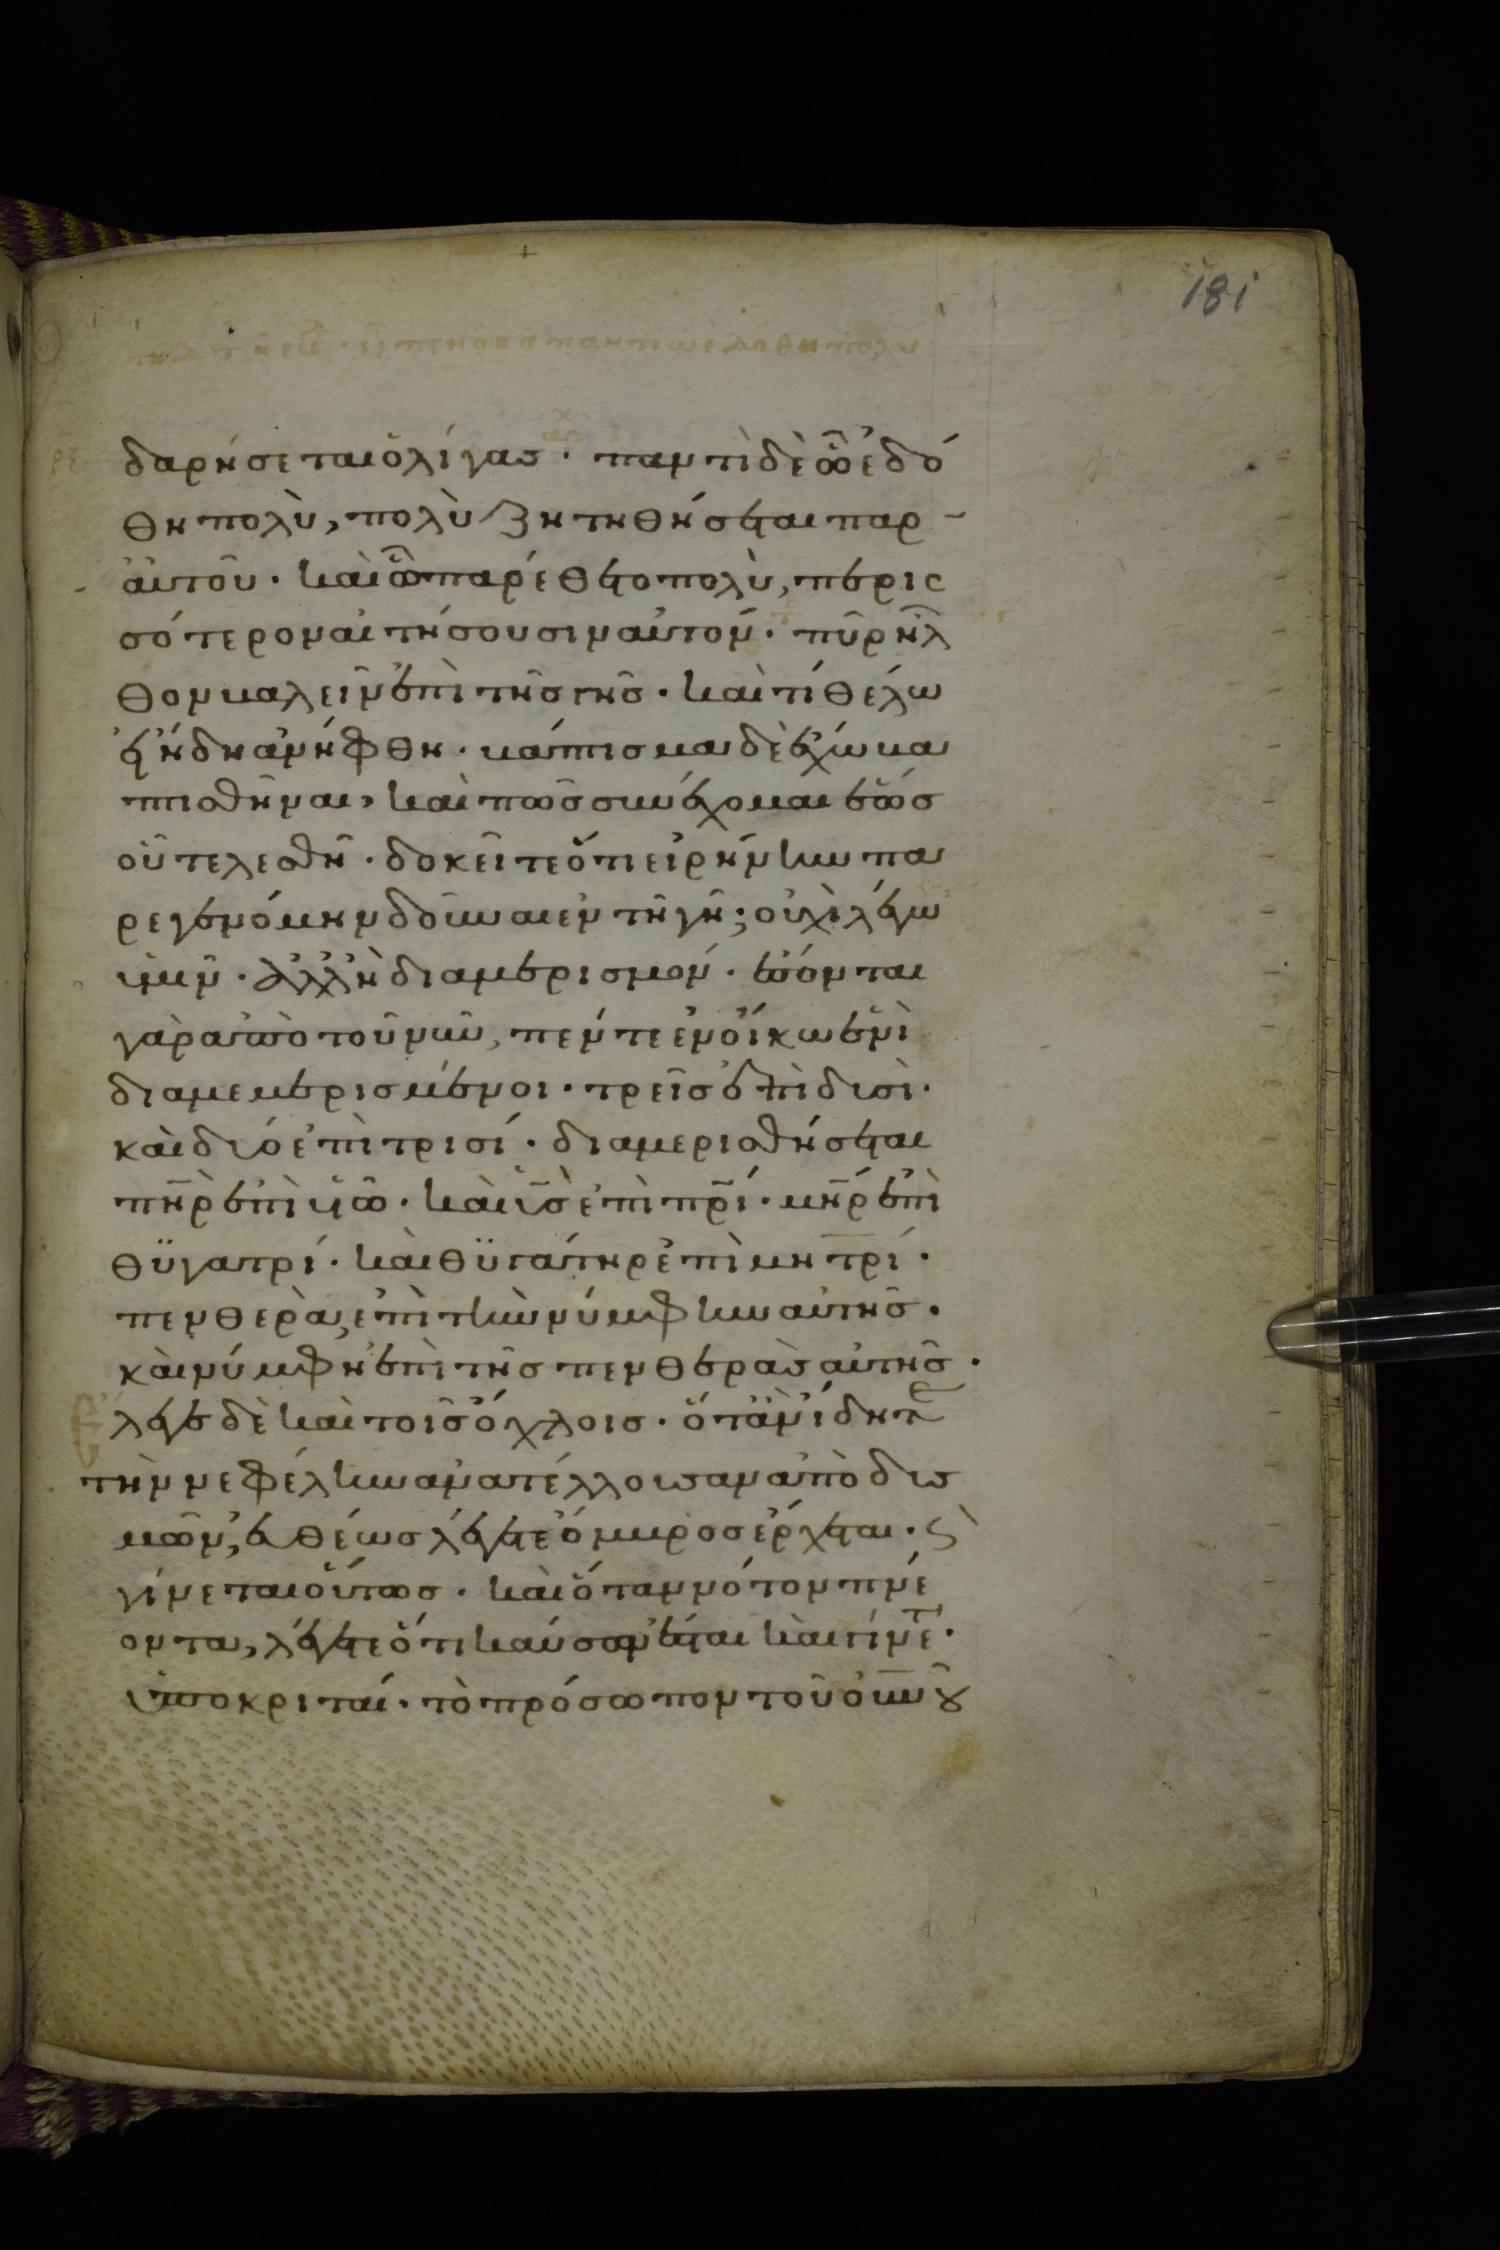 181
δαρήσεται ὀλίγας · παντὶ δὲ ὧ ἐδό
θη πολὺ, πολὺ ζητηθήσεται παρ
αὐτοῦ · καὶ ὧ παρέθεντο πολὺ, περισ
σότερον αἰτήσουσιν αὐτόν · πῦρ ἦλ
θον βαλεῖν ἐπὶ τῆς γῆς · καὶ τί θέλω
εἰ ἤδη ἀνήφθη · βάπτισμα δὲ ἔχω βα
πτισθῆναι, καὶ πῶς συνέχομαι ἕως
οὗ τελεσθῆ · δοκεῖτε ὅτι εἰρήνην πα
ρεγενόμην δοῦναι ἐν τῆ γῆ; οὐχὶ λέγω
ὑμῖν · ἀλλ' ἢ διαμερισμόν · ἔσονται
γὰρ ἀπὸ τοῦ νῦν, πέντε ἐν οἴκω ἑνὶ
διαμεμερισμένοι · τρεῖς ἐπὶ δυσὶ ·
καὶ δύο ἐπὶ τρισί · διαμερισθήσεται
πηρ ἐπὶ υἱῶ · καὶ υς ἐπὶ πρί · μηρ ἐπὶ
θϋγατρί · καὶ θϋγάτηρ ἐπὶ μητρί ·
πενθερὰ, ἐπὶ τὴν νύμφην αὐτῆς ·
καὶ νύμφη ἐπὶ τῆς πενθερὰς αὐτῆς ·
λέγε δὲ καὶ τοῖς ὄχλοις · ὅταν ἴδητε
τὴν νεφέλην ἀνατέλλουσαν ἀπὸ δυσ
μῶν, εὐθέως λέγετε ὄμβρος ἔρχεται · ϛ
γίνεται οὕτως · καὶ ὅταν νότον πνέ
οντα, λέγετε ὅτι καύσων ἔσται καὶ γίνετ ·
ὑποκριταί · τὸ πρόσωπον τοῦ οὐνοῦ